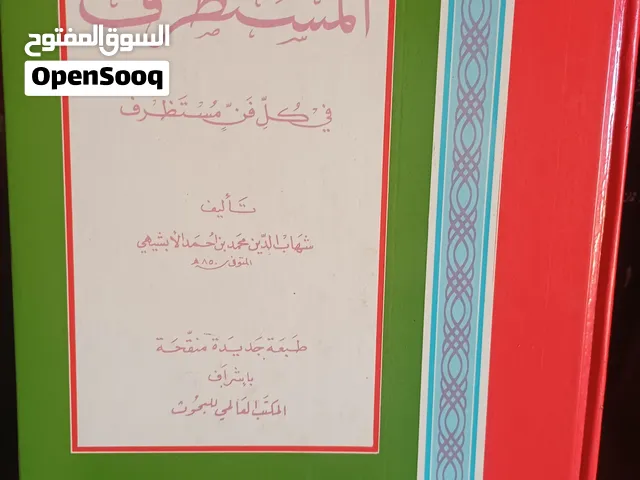 السوق المفتوح
OpenSooq
المستطرف
في كُلِّ فَنٍّ مُسْتَظْرف
تأليف
شهاب الدين محمد بن أحمد الأبشيهي
المتوفى سنة ٨٥٠ هـ
طبعة جديدة منقّحة
بإشراف
المكتب العالمي للبحوث